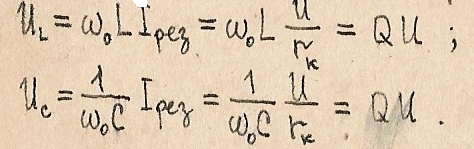 U_L = ω₀ L I_рез = ω₀ L U/r_к = QU ;
U_c = 1/ω₀C I_рез = 1/ω₀C U/r_к = QU .